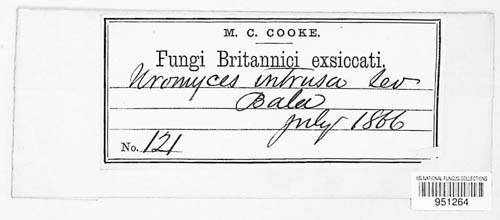 M. C. COOKE.
Fungi Britannici exsiccati.
Uromyces intrusa Lev
Bala
July 1866
No. 121
US NATIONAL FUNGUS COLLECTIONS
951264